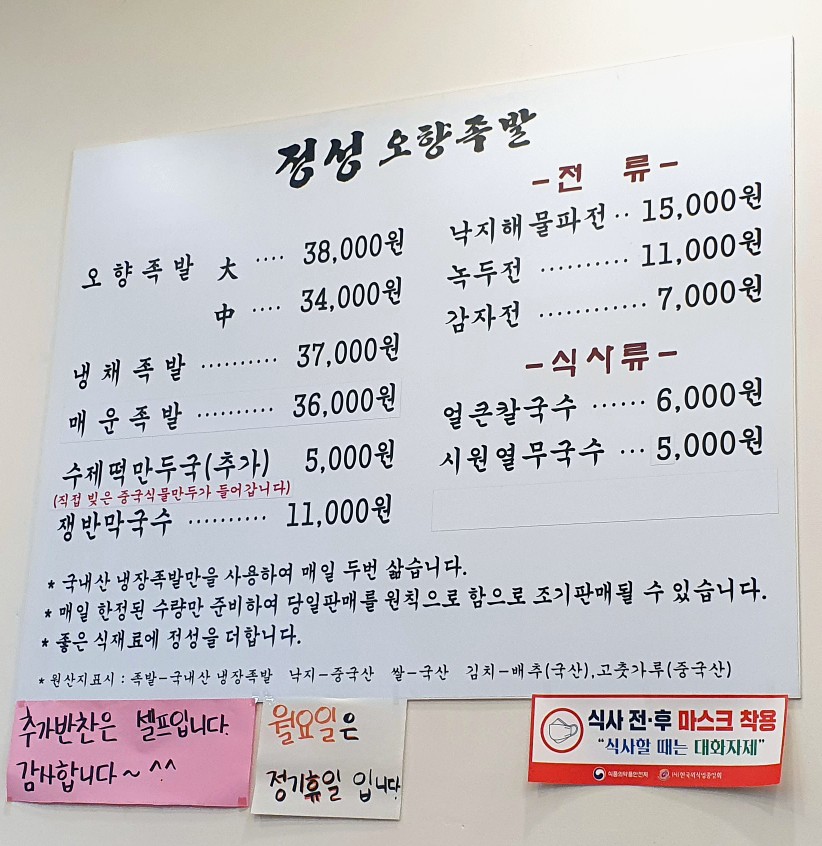 정성 오향족발
오향족발 大 ···· 38,000원
中 ···· 34,000원
냉채족발 ·········· 37,000원
매운족발 ·········· 36,000원
수제떡만두국(추가) 5,000원
(직접 빚은 중국식물만두가 들어갑니다)
쟁반막국수 ·········· 11,000원
-전 류-
낙지해물파전 ·· 15,000원
녹두전 ·········· 11,000원
감자전 ············ 7,000원
-식사류-
얼큰칼국수 ······ 6,000원
시원열무국수 ··· 5,000원
* 국내산 냉장족발만을 사용하여 매일 두번 삶습니다.
* 매일 한정된 수량만 준비하여 당일판매를 원칙으로 함으로 조기판매될 수 있습니다.
* 좋은 식재료에 정성을 더합니다.
* 원산지표시 : 족발-국내산 냉장족발 낙지-중국산 쌀-국산 김치-배추(국산),고춧가루(중국산)
추가반찬은 셀프입니다.
감사합니다~ ^^
월요일은
정기휴일 입니다
식사 전·후 마스크 착용
“식사할 때는 대화자제”
식품의약품안전처 (사)한국외식업중앙회